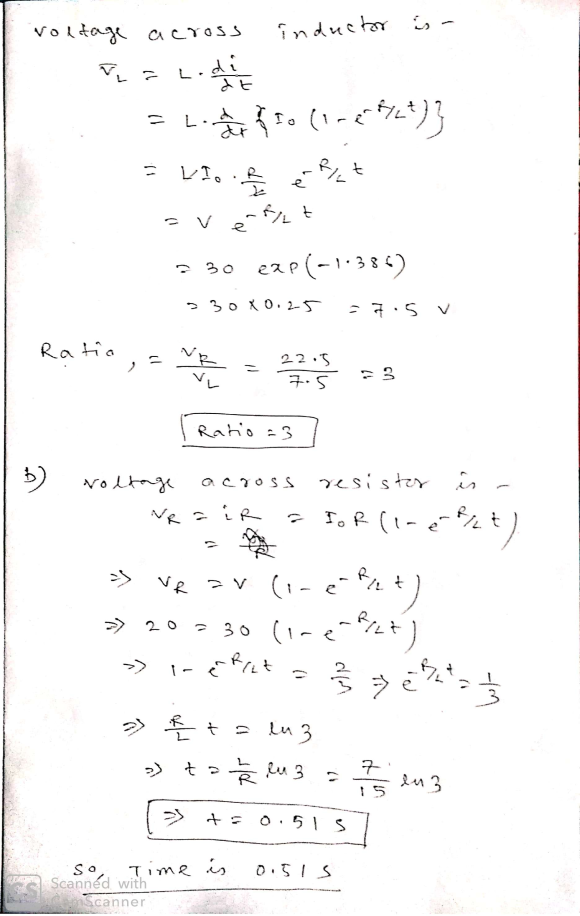 voltage across inductor is -
V̄_L = L·di/dt
= L·d/dt {I₀(1-e^-R/L t)}
= L I₀·R/L e^-R/L t
= V e^-R/L t
= 30 exp(-1.386)
= 30×0.25 = 7.5 V
Ratio, = V_R/V_L = 22.5/7.5 = 3
Ratio = 3
b) voltage across resistor is -
V_R = iR = I₀R(1-e^-R/L t)
=
⇒ V_R = V (1-e^-R/L t)
⇒ 20 = 30 (1-e^-R/L t)
⇒ 1-e^-R/L t = 2/3 ⇒ e^-R/L t = 1/3
⇒ R/L t = ln 3
⇒ t = L/R ln 3 = 7/15 ln 3
⇒ t = 0.51 s
so, Time is 0.51 s
CS Scanned with
CamScanner